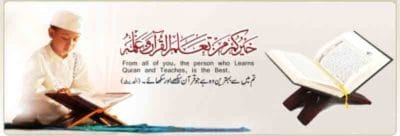 خيركم من تعلم القرآن وعلمه
From all of you, the person who Learns
Quran and Teaches, is the Best.
تم میں سے بہترین وہ ہے جو قرآن سیکھے اور سکھائے۔ (الحدیث)